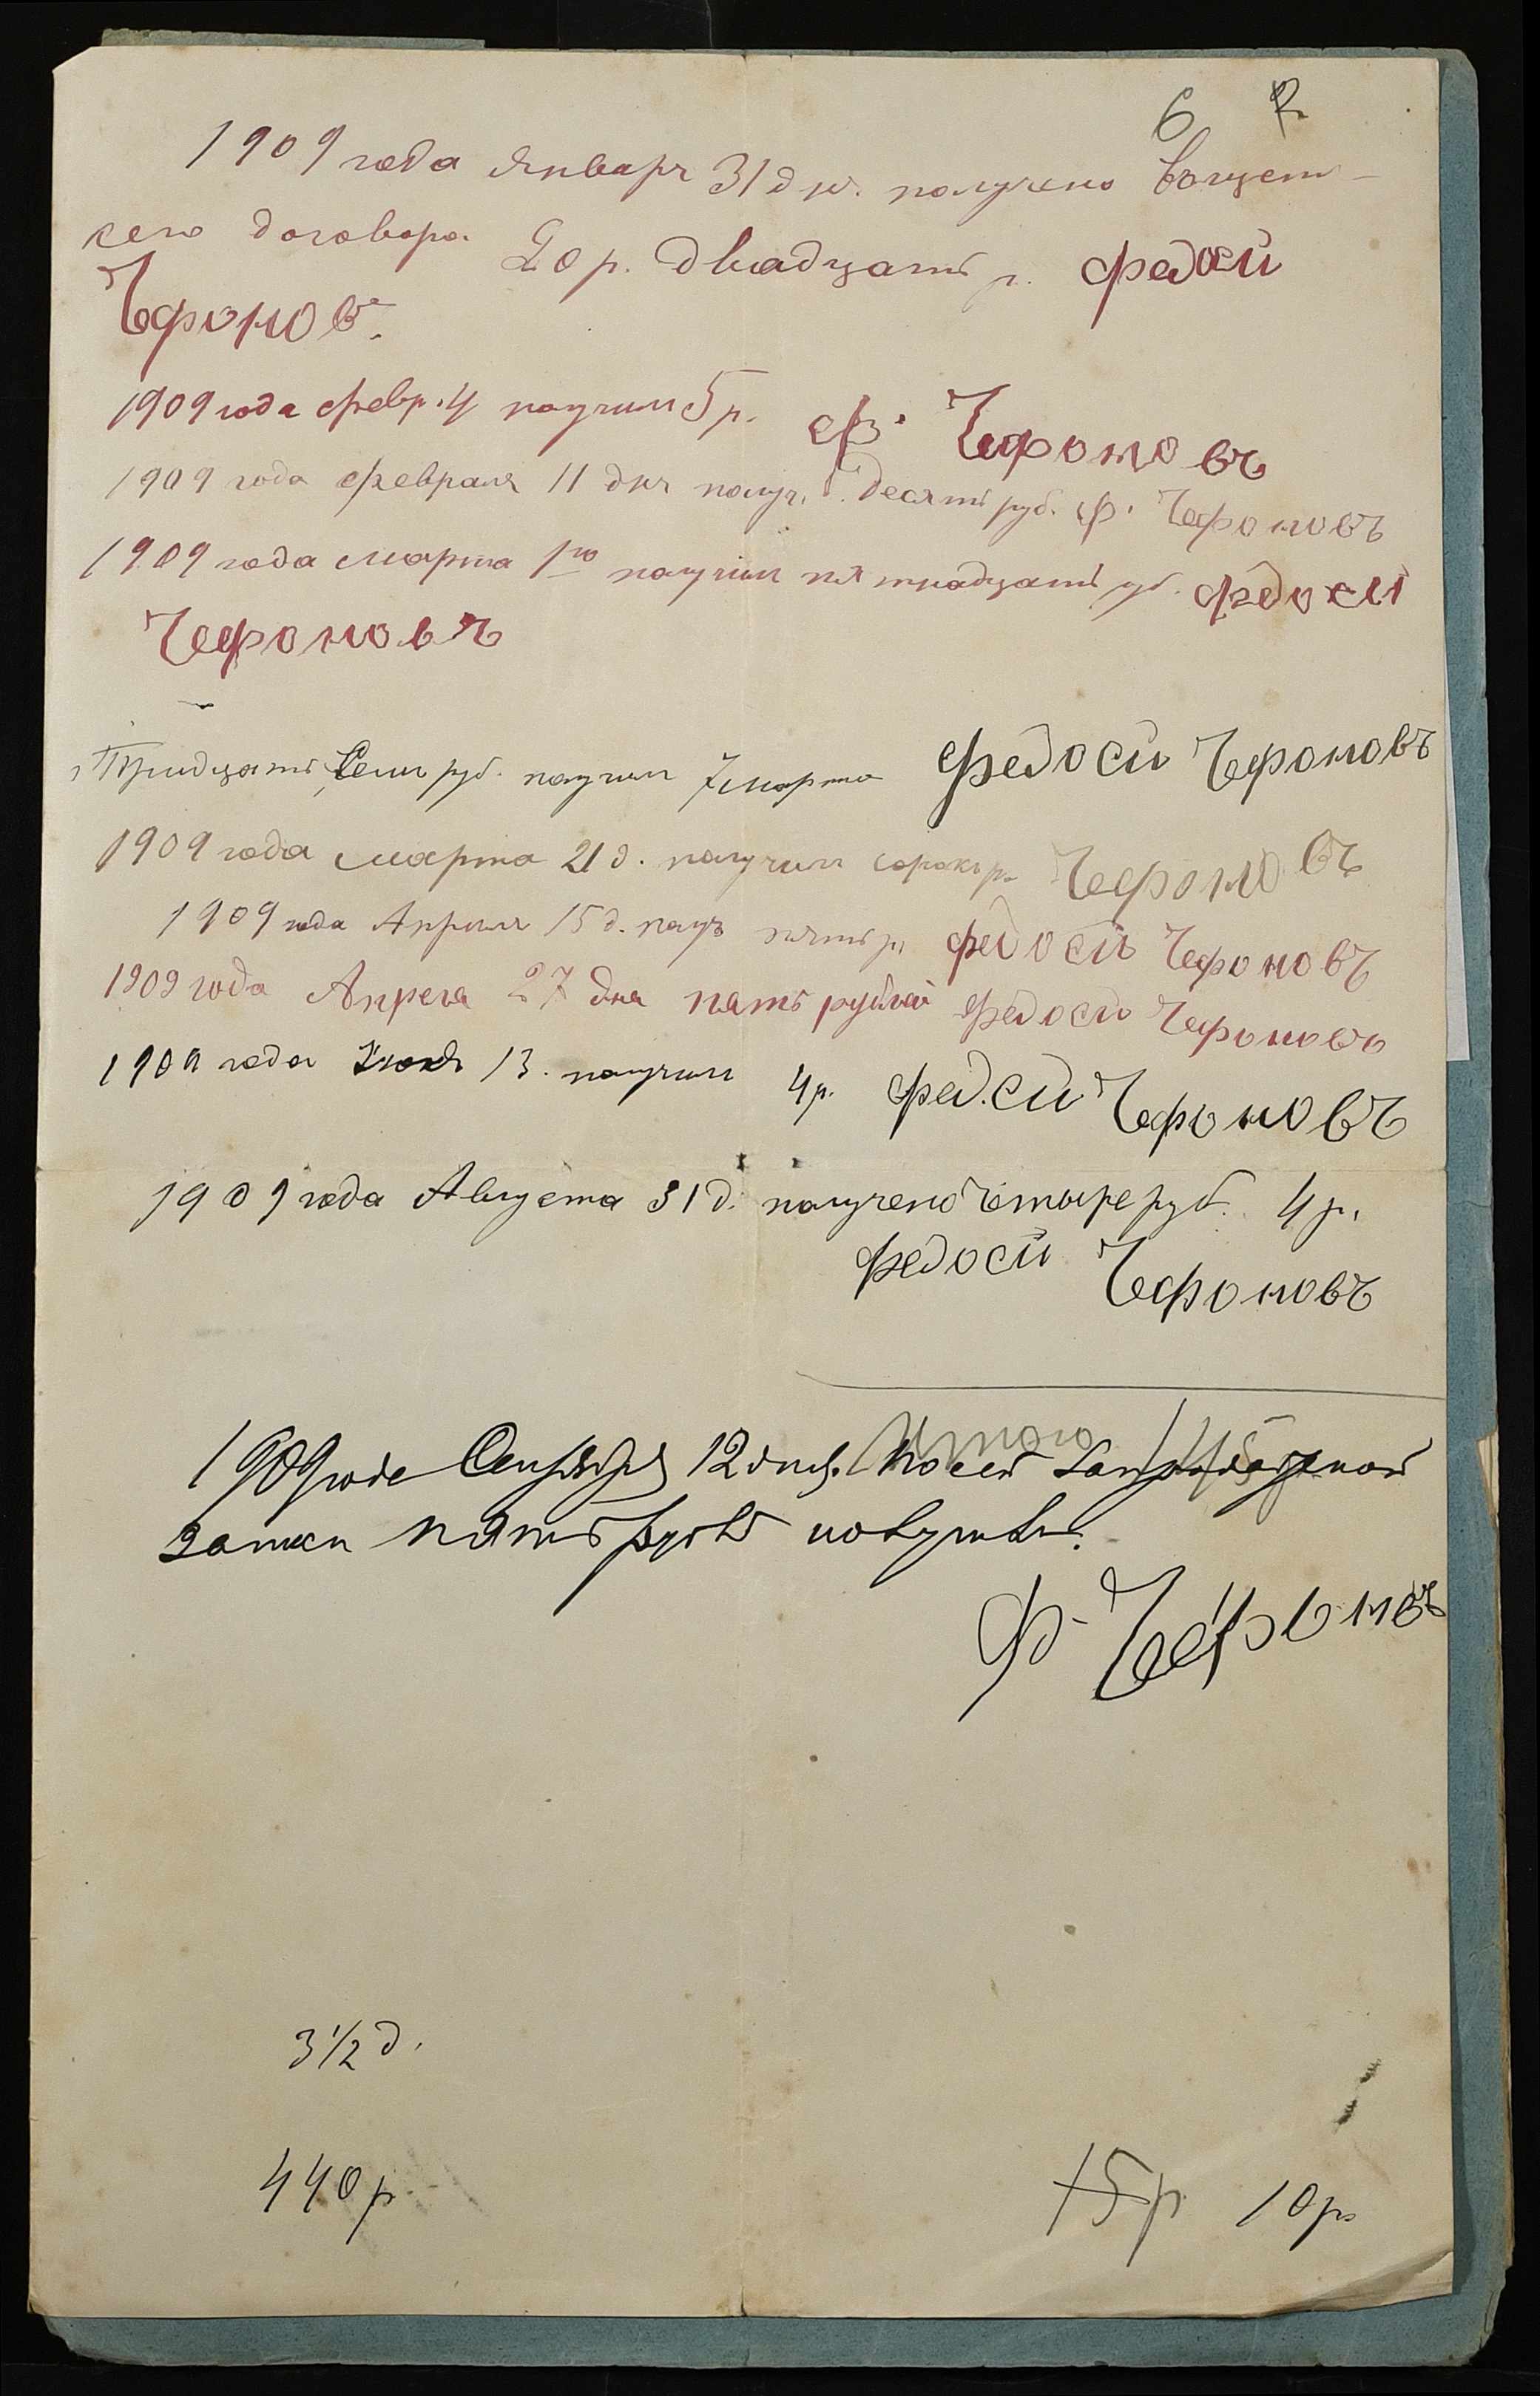 6
1909 года Января 31 дн. получено всчет
сего договора 20 р. двадцать р. Федосй
Чфоновъ.
1909 года Февр. 4 получил 5 р. Ф. Чефоновъ
1909 года Февраля 11 дня получ. десять руб. Ф. Чефоновъ
1909 года Марта 1го получил пятнадцать уб. Федоси
Чефоновъ
Тридцать Семь руб. получил 7 марта Федоси Чефоновъ
1909 года Марта 21 д. получил сорокъ р. Чефоновъ
1909 года Апреля 15 д. получ пять р. Федоси Чефоновъ
1909 года Апреля 27 дня пять рублей Федоси Чефоновъ
1909 года 13. получил 4 р. Федоси Чефоновъ
1909 года Августа 31 д. получено четыре руб. 4 р.
Федоси Чефоновъ
Итого 145
1909 годе Сентября 12 дня. По сей
пять рубле
Ф. Чефоновъ
3 1/2 д.
440 р
15 р 10 р